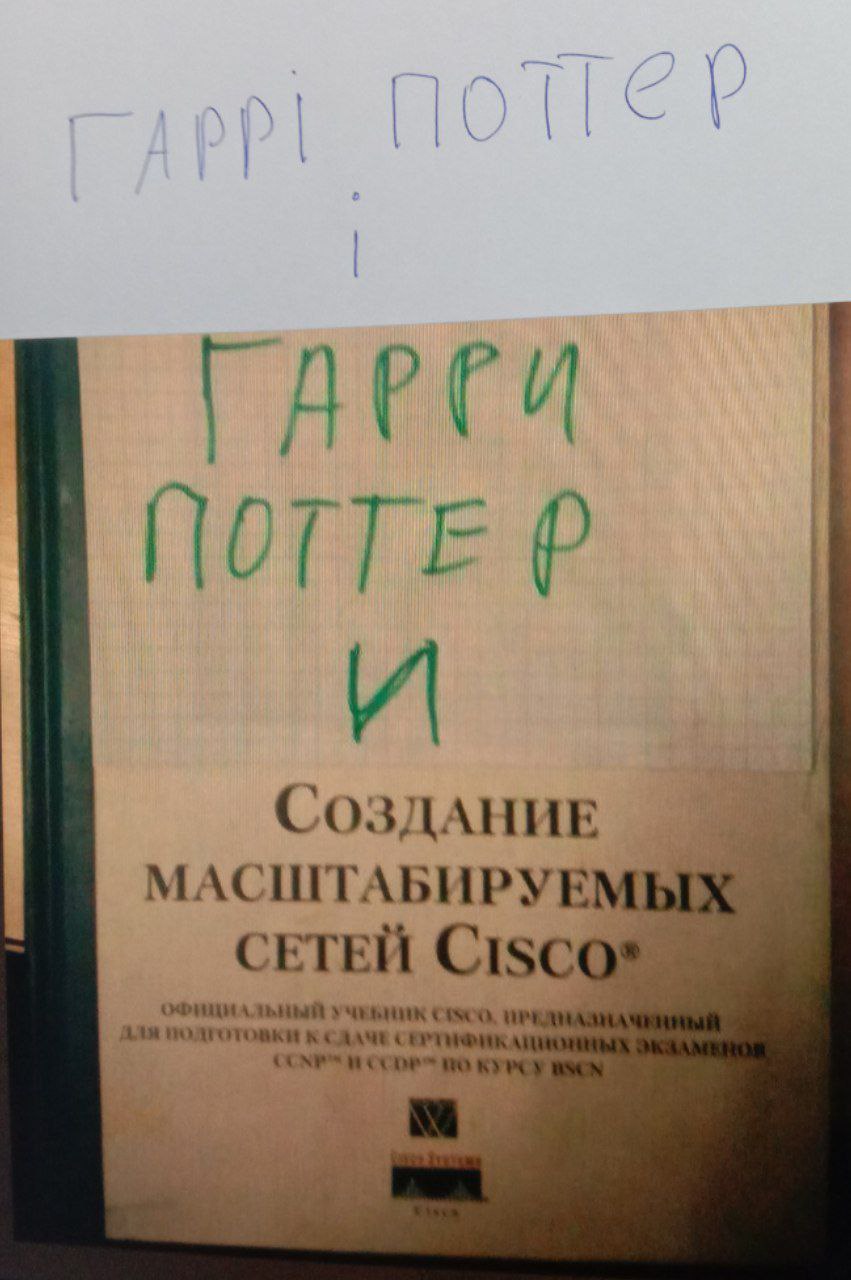 ГАРРІ ПОТТЕР
і
ГАРРИ
ПОТТЕР
И
СОЗДАНИЕ
МАСШТАБИРУЕМЫХ
СЕТЕЙ CISCO®
ОФИЦИАЛЬНЫЙ УЧЕБНИК CISCO, ПРЕДНАЗНАЧЕННЫЙ
ДЛЯ ПОДГОТОВКИ К СДАЧЕ СЕРТИФИКАЦИОННЫХ ЭКЗАМЕНОВ
CCNP™ И CCDP™ ПО КУРСУ BSCN
W
CISCO SYSTEMS
CISCO